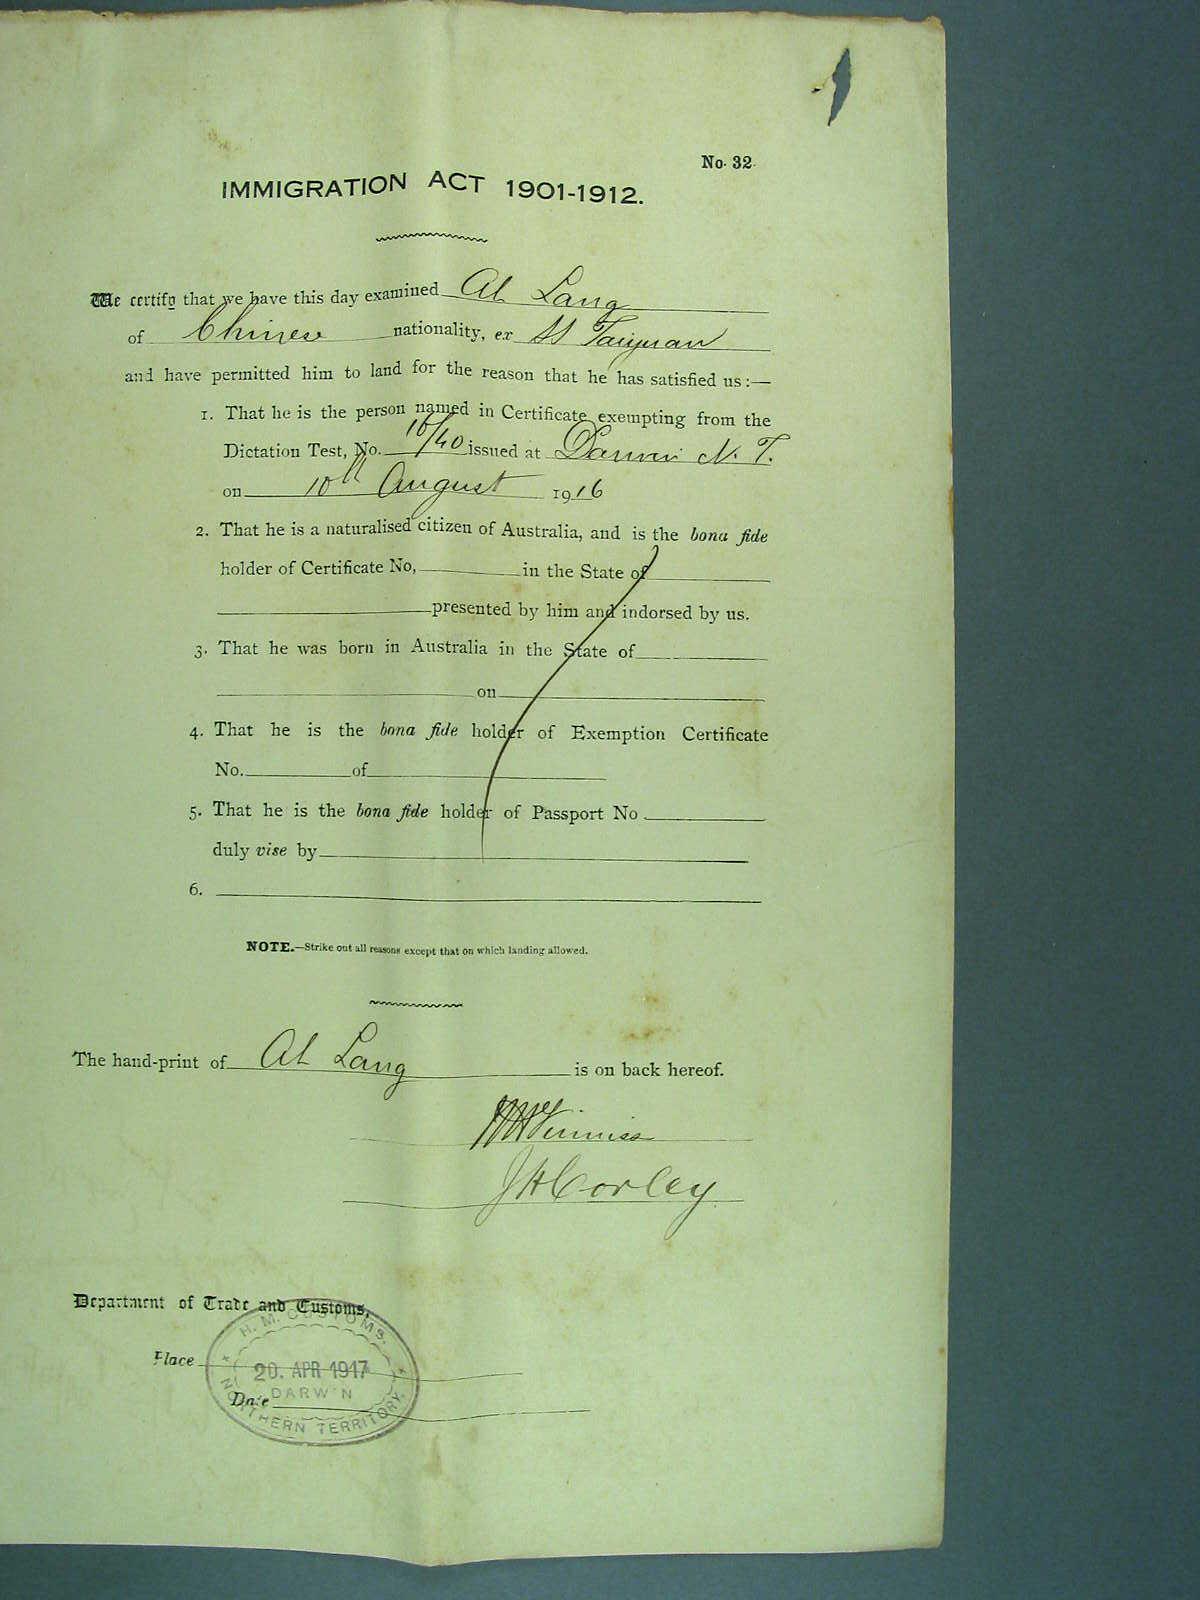 No. 32
IMMIGRATION ACT 1901-1912.
We certify that we have this day examined Ah Lang
of Chinese nationality, ex SS Taiyuan
and have permitted him to land for the reason that he has satisfied us:—
1. That he is the person named in Certificate exempting from the
Dictation Test, No. 16/40 issued at Darwin N. T.
on 10th August 1916
2. That he is a naturalised citizen of Australia, and is the bona fide
holder of Certificate No, in the State of
presented by him and indorsed by us.
3. That he was born in Australia in the State of
on
4. That he is the bona fide holder of Exemption Certificate
No. of
5. That he is the bona fide holder of Passport No
duly vise by
6.
NOTE.—Strike out all reasons except that on which landing allowed.
The hand-print of Ah Lang is on back hereof.
J H Corley
Department of Trade and Customs,
H. M. CUSTOMS.
Place
20. APR 1917
DARWIN
Date
NORTHERN TERRITORY